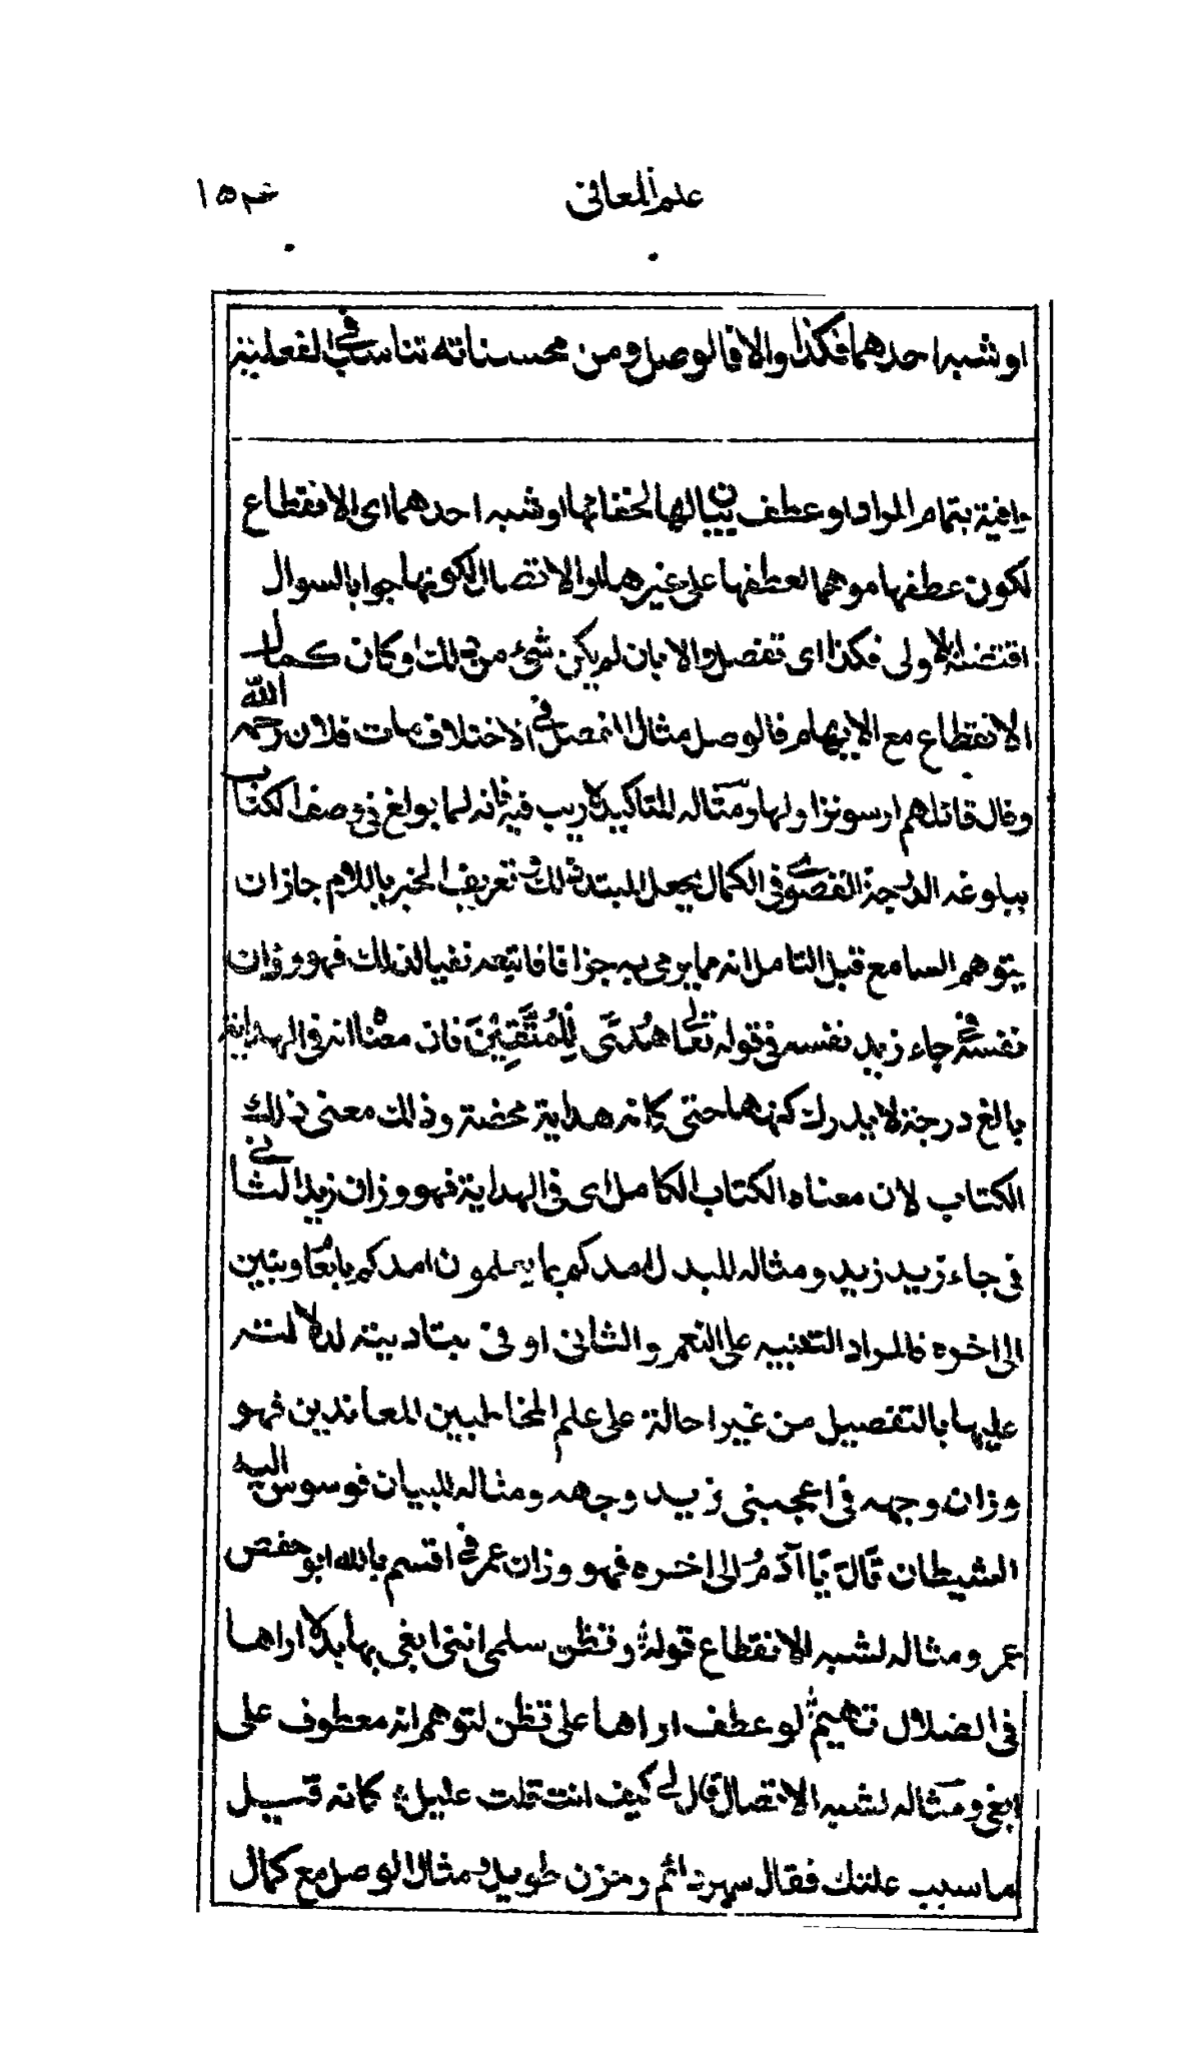 علم المعانى
١٥٣
او شبه احدهما فكذا والا فالوصل ومن محسناته تناسب فى الفعلية
وافية بتمام المراد او عطف بيان لها لخفائها او شبه احدهما اى الانقطاع
لكون عطفها موهما لعطفها على غيرها او الاتصال لكونها جوابا لسوال
اقتضته الاولى فكذا اى تفصل والا بان لم يكن شئ من ذلك او كان كمال
الانقطاع مع الايهام فالوصل مثال الفصل فى الاختلاف مات فلان رحمه الله
وقال قائلهم ارسو نزاولها ومثاله للتاكيد لا ريب فيه فانه لما بولغ فى وصف الكتاب
ببلوغه الدرجة القصوى فى الكمال بجعل المبتدا ذلك وتعريف الخبر باللام جاز ان
يتوهم السامع قبل التامل انه مما يرمى به جزافا فاتبعه نفيا لذلك فهو وزان
نفسه فى جاء زيد نفسه فى قوله تعالى هُدًى لِلْمُتَّقِيْنَ فان معناه انه فى الهداية
بالغ درجة لا يدرك كنهها حتى كانه هداية محضة وذلك معنى ذلك
الكتاب لان معناه الكتاب الكامل اى فى الهداية فهو وزان زيد الثانى
فى جاء زيد زيد ومثاله للبدل امدكم بما يعلمون امدكم بانعام وبنين
الى اخره فالمراد التنبيه على النعم والثانى اوفى بتاديته لدلالته
عليها بالتفصيل من غير احالة على علم المخاطبين المعاندين فهو
وزان وجهه فى اعجبنى زيد وجهه ومثاله للبيان فوسوس اليه
الشيطان قَالَ يَا آدَمُ الى اخره فهو وزان عمر فى اقسم بالله ابو حفص
عمر ومثاله لشبه الانقطاع قوله وتظن سلمى اننى ابغى بها بدلا اراها
فى الضلال تهيم لو عطف اراها على تظن لتوهم انه معطوف على
ابغى ومثاله لشبه الاتصال قال لى كيف انت قلت عليل كانه قيل
ما سبب علتك فقال سهر دائم وحزن طويل ومثال الوصل مع كمال